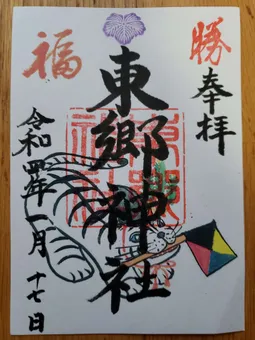 勝
奉拝
東郷神社
福
令和四年一月
十七日